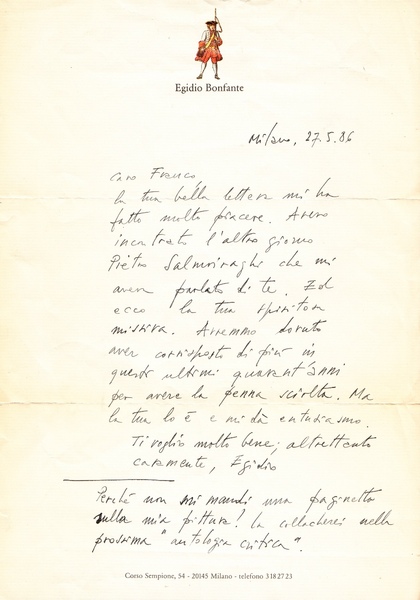 Egidio Bonfante
Milano, 27.5.86
caro Franco,
la tua bella lettera mi ha
fatto molto piacere. Avevo
incontrato l'altro giorno
Pietro Salmoiraghi che mi
aveva parlato di te. Ed
ecco la tua spiritosa
missiva. Avremmo dovuto
aver corrisposto di più in
questi ultimi quarant'anni
per avere la penna sciolta. Ma
la tua lo è e mi dà entusiasmo.
Ti voglio molto bene, altrettanto
caramente, Egidio
Perché non mi mandi una paginetta
sulla mia pittura? la collocherei nella
prossima "antologia critica".
Corso Sempione, 54 - 20145 Milano - telefono 3182723